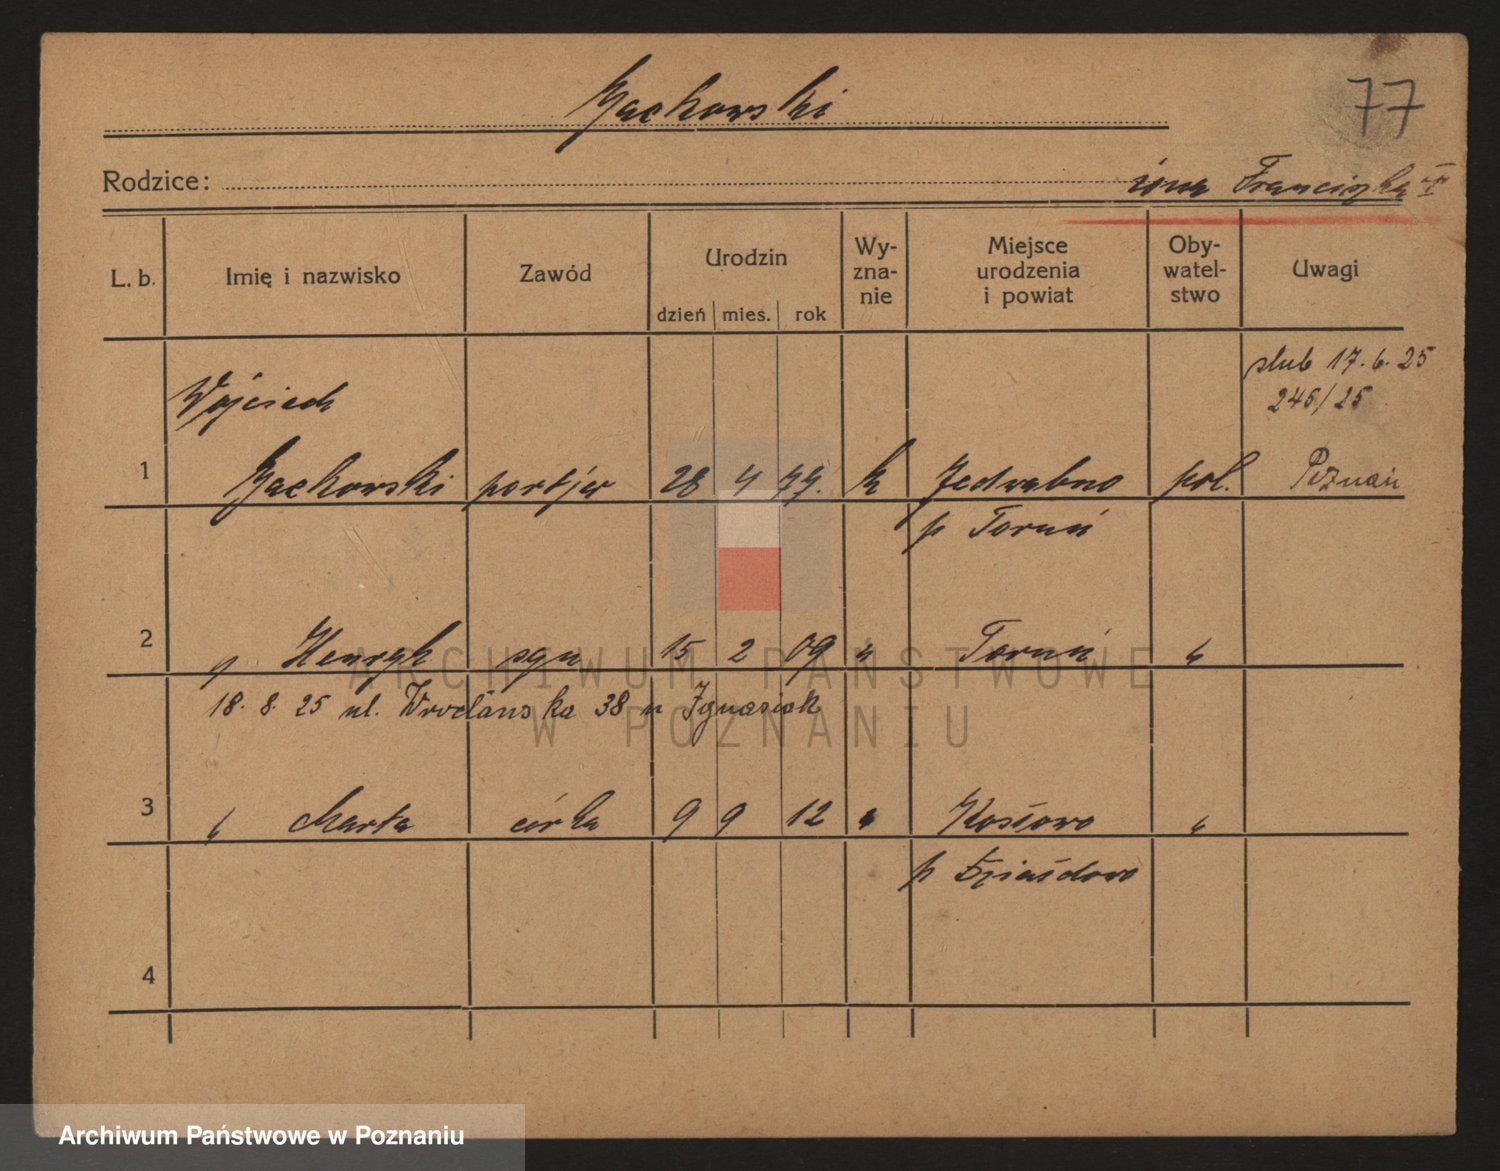 77
Żachowski
Rodzice: żona Franciszka
L. b. Imię i nazwisko Zawód Urodzin dzień mies. rok Wy-zna-nie Miejsce urodzenia i powiat Oby-watel-stwo Uwagi
ślub 17. 6. 25
246/25
Wojciech
1 Żachowski portjer 28 4 77. k Jedwabno pol. Poznań
p Toruń
2 " Henryk syn 15 2 09 " Toruń "
18. 8. 25 ul. Wrocławska 38 u Ignasiak
3 " Marta córka 9 9 12 " Kosłowo "
p Działdowo
4
ARCHIWUM PAŃSTWOWE
W POZNANIU
Archiwum Państwowe w Poznaniu